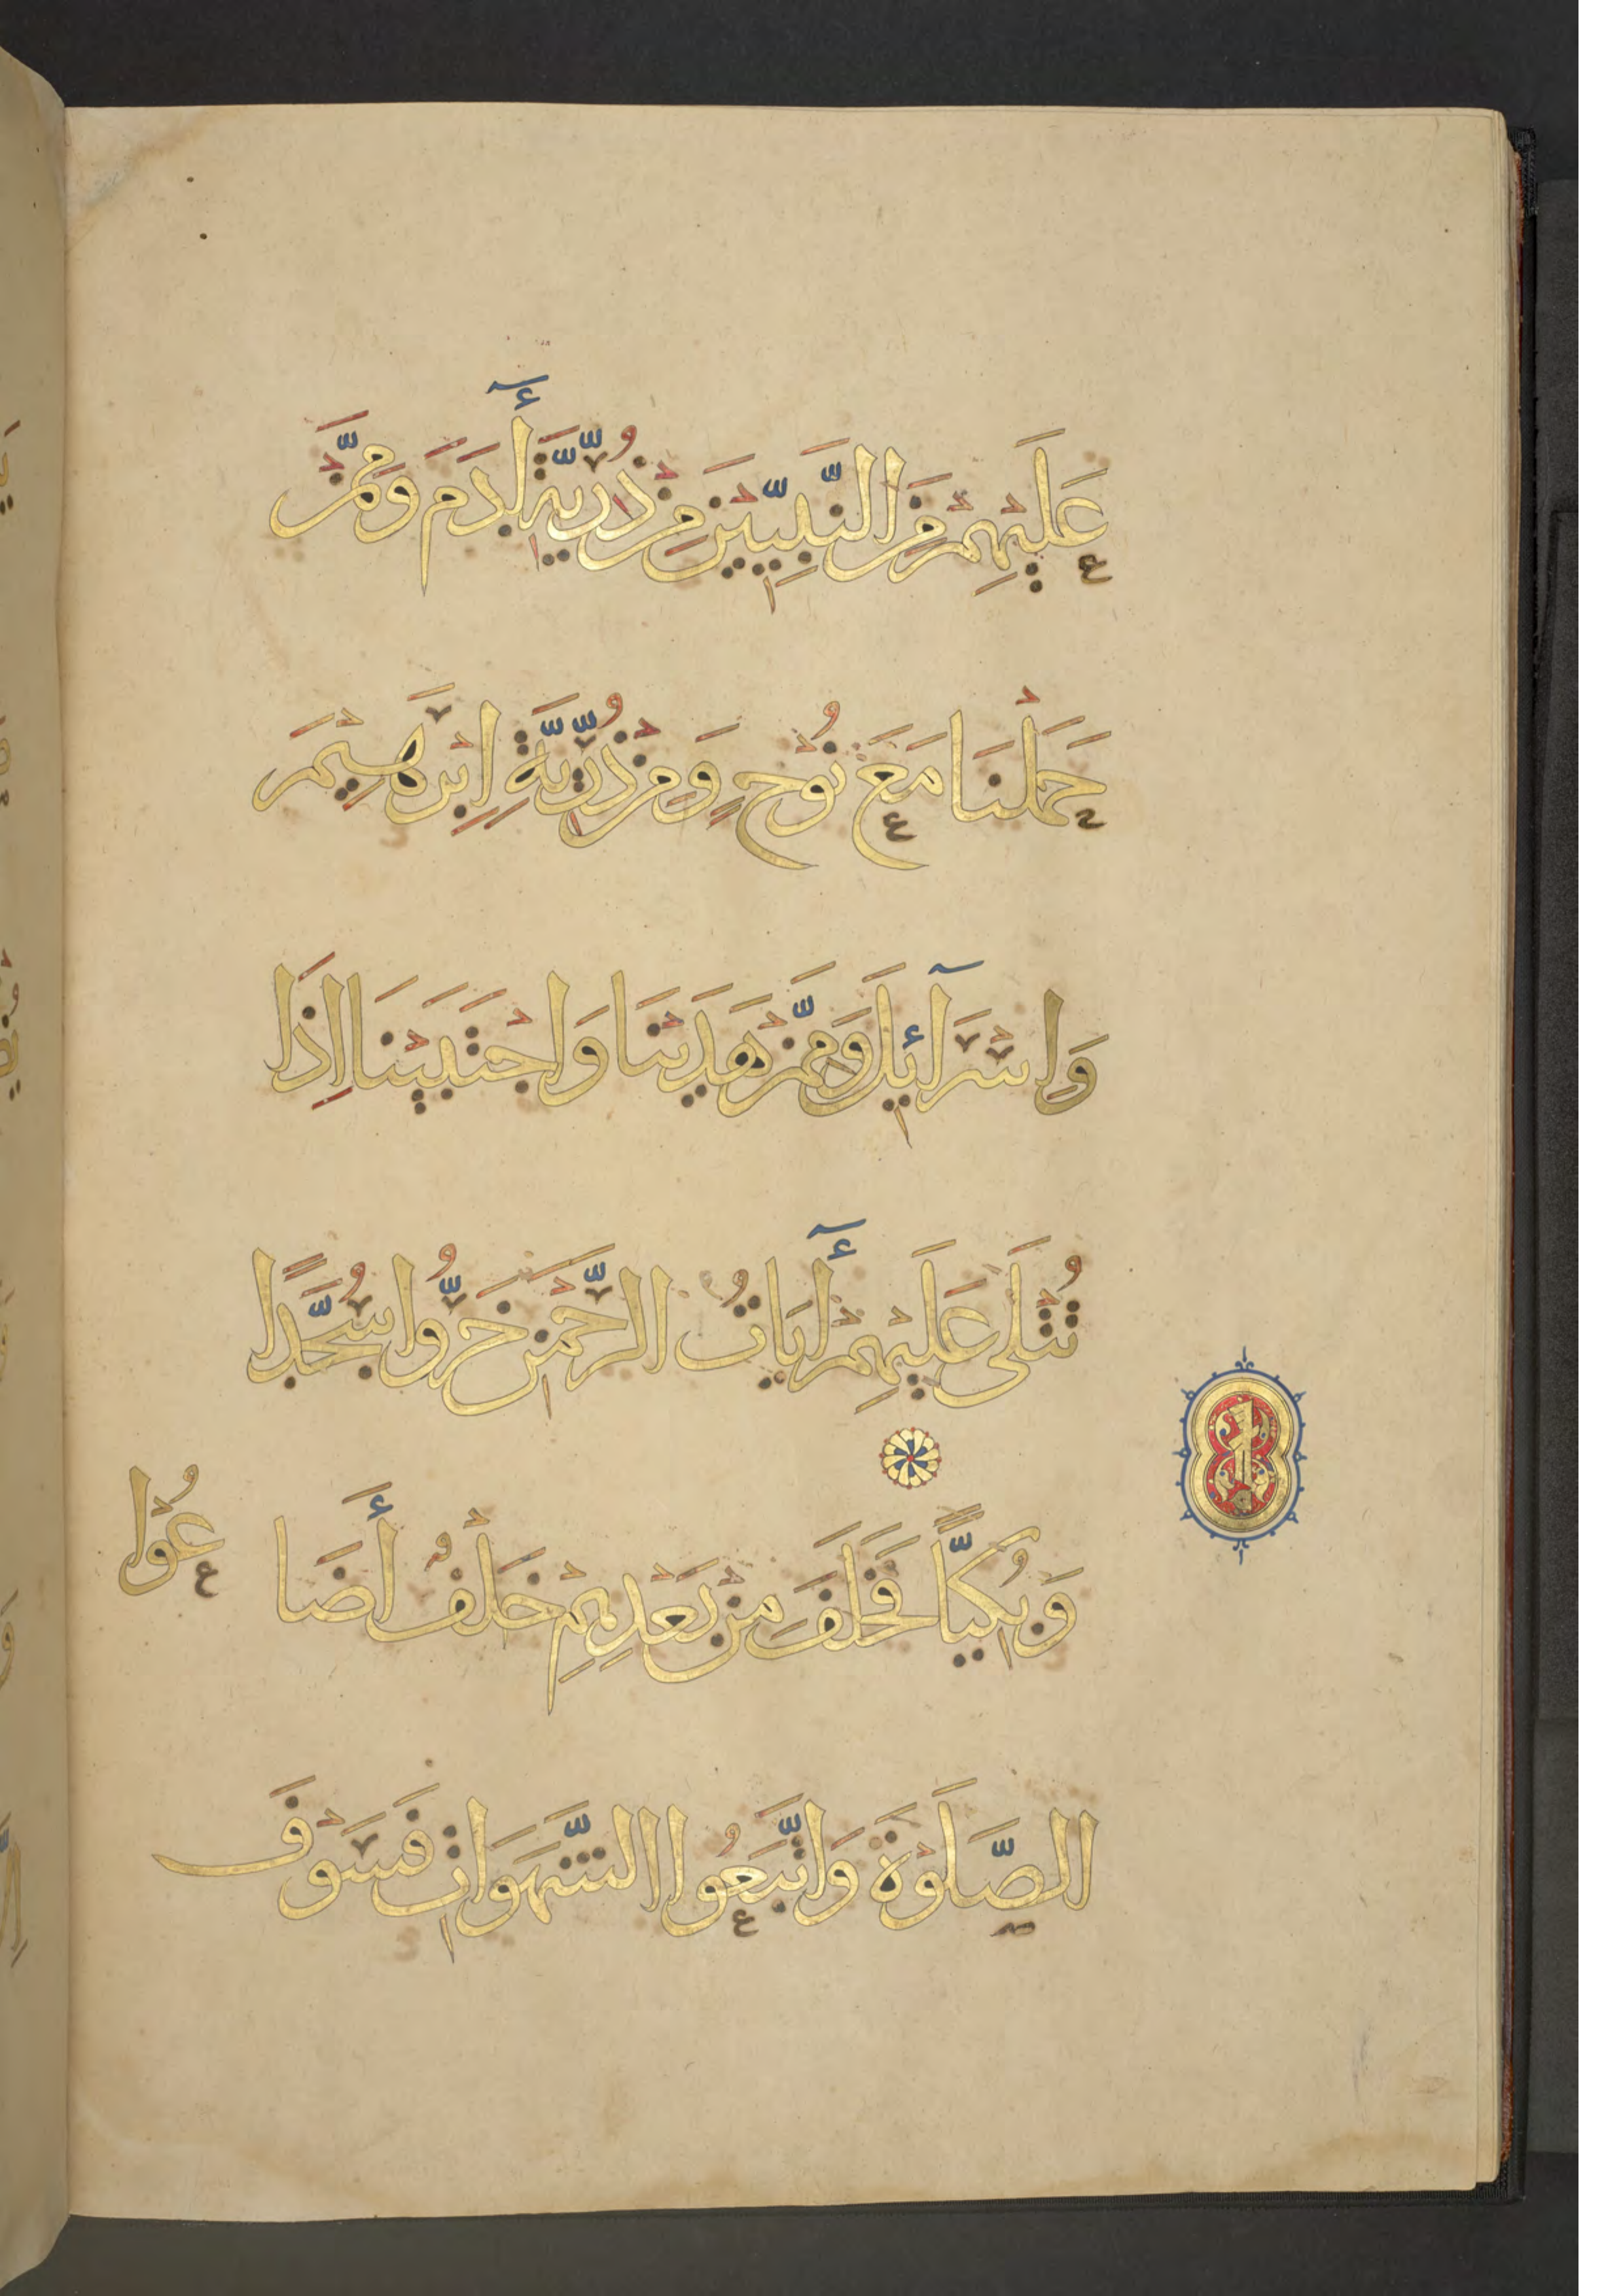 عَلَيْهِمْ مِنَ النَّبِيِّيْنَ مِنْ ذُرِّيَّةِ أٓدَمَ وَمِمَّنْ
حَمَلْنَا مَعَ نُوْحٍ وَمِنْ ذُرِّيَّةِ اِبْرَهِيْمَ
وَاِسْرَآئِلَ وَمِمَّنْ هَدَيْنَا وَاجْتَبَيْنَا اِذَا
تُتْلَى عَلَيْهِمْ أٓيَاتُ الرَّحْمَنِ خَرُّوا سُجَّدًا
وَبُكِيًّا فَخَلَفَ مِنْ بَعْدِهِمْ خَلْفٌ أَضَا
عُوْا
الصَّلَوْةَ وَاتَّبَعُوا الشَّهَوَاتِ فَسَوْفَ